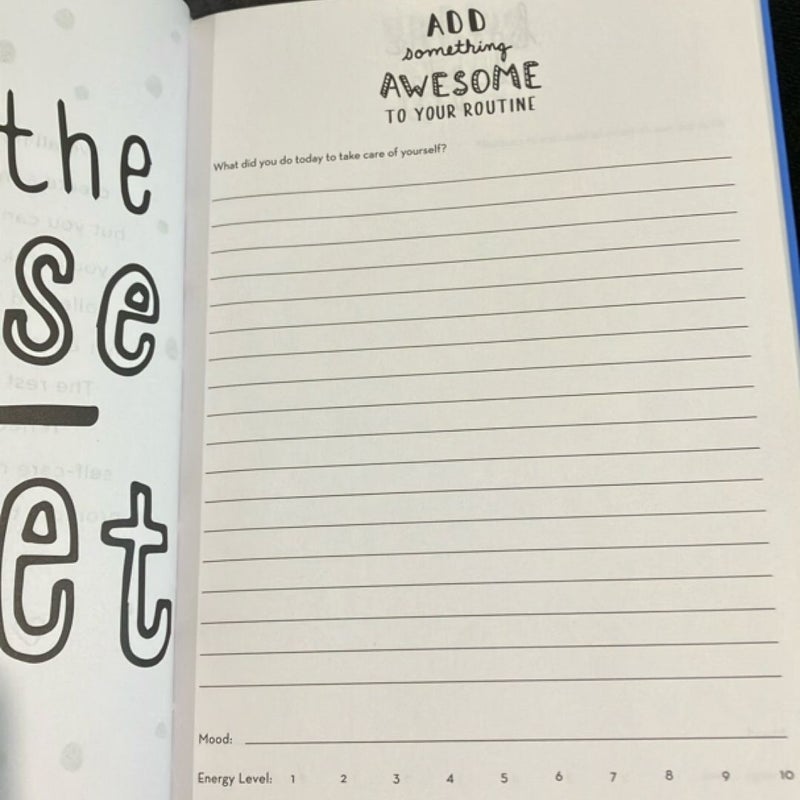 the
se
et
ADD
something
AWESOME
TO YOUR ROUTINE
What did you do today to take care of yourself?
Mood:
Energy Level: 1 2 3 4 5 6 7 8 9 10